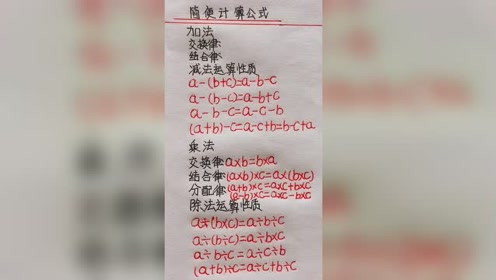 简便计算公式
加法
交换律:
结合律:
减法运算性质
a-(b+c)=a-b-c
a-(b-c)=a-b+c
a-b-c=a-c-b
(a+b)-c=a-c+b=b-c+a
乘法
交换律:a×b=b×a
结合律:(a×b)×c=a×(b×c)
分配律:(a+b)×c=a×c+b×c
(a-b)×c=a×c-b×c
除法运算性质
a÷(b×c)=a÷b÷c
a÷(b÷c)=a÷b×c
a÷b÷c=a÷c÷b
(a+b)÷c=a÷c+b÷c